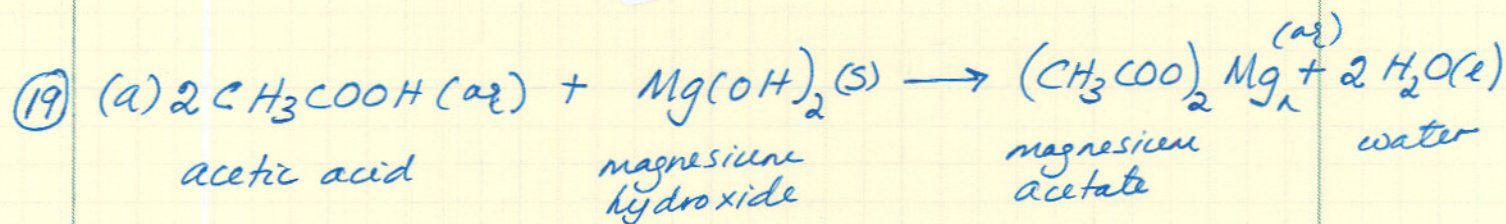 (19) (a) 2 CH₃COOH (aq) + Mg(OH)₂ (s) → (CH₃COO)₂ Mg (aq) + 2 H₂O(l)
acetic acid magnesium hydroxide magnesium acetate water